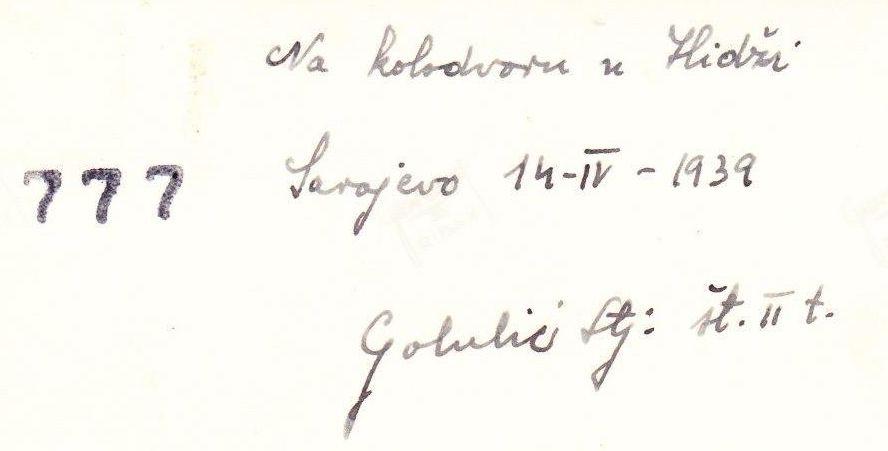 Na kolodvoru u Ilidži
777 Sarajevo 14-IV-1939
Golulić Stj: št. II t.